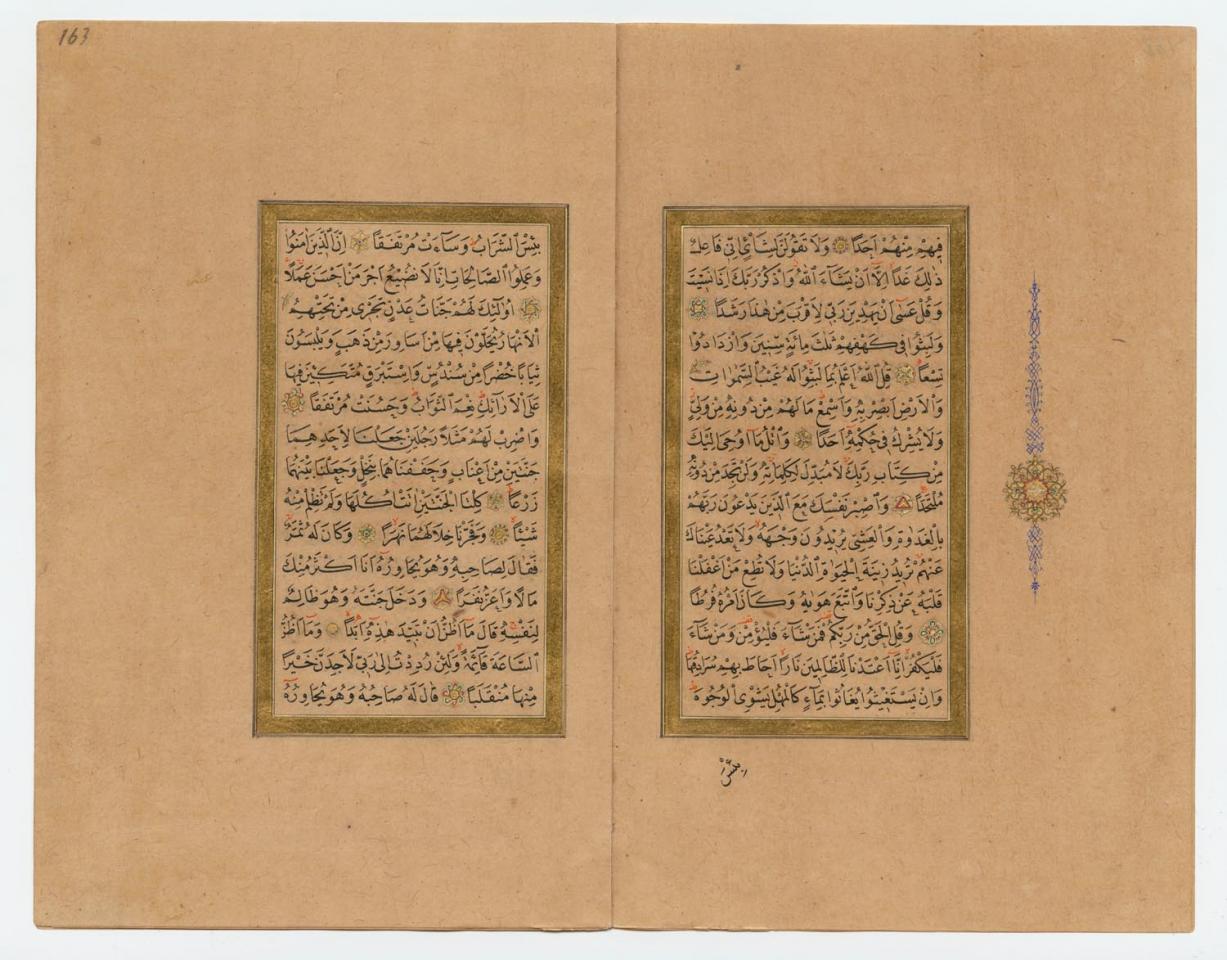 فِيهِمْ مِنْهُمْ اَحَدًا وَلَا تَقُولَنَّ لِشَایْءٍ اِنّٖى فَاعِلٌ
ذٰلِكَ غَدًا اِلَّٓا اَنْ يَشَٓاءَ اللّٰهُ وَاذْكُرْ رَبَّكَ اِذَا نَسٖيتَ
وَقُلْ عَسٰٓى اَنْ يَهْدِيَنِ رَبّٖى لِاَقْرَبَ مِنْ هٰذَا رَشَدًا
وَلَبِثُوا فٖى كَهْفِهِمْ ثَلٰثَ مِائَةٍ سِنٖينَ وَازْدَادُوا
تِسْعًا قُلِ اللّٰهُ اَعْلَمُ بِمَا لَبِثُوا لَهُ غَيْبُ السَّمٰوَاتِ
وَالْاَرْضِ اَبْصِرْ بِهٖ وَاَسْمِعْ مَا لَهُمْ مِنْ دُونِهٖ مِنْ وَلِىٍّ
وَلَا يُشْرِكُ فٖى حُكْمِهٖٓ اَحَدًا وَاتْلُ مَٓا اُوحِىَ اِلَيْكَ
مِنْ كِتَابِ رَبِّكَ لَا مُبَدِّلَ لِكَلِمَاتِهٖ وَلَنْ تَجِدَ مِنْ دُونِهٖ
مُلْتَحَدًا وَاصْبِرْ نَفْسَكَ مَعَ الَّذٖينَ يَدْعُونَ رَبَّهُمْ
بِالْغَدٰوةِ وَالْعَشِىِّ يُرٖيدُونَ وَجْهَهُ وَلَا تَعْدُ عَيْنَاكَ
عَنْهُمْ تُرٖيدُ زٖينَةَ الْحَيٰوةِ الدُّنْيَا وَلَا تُطِعْ مَنْ اَغْفَلْنَا
قَلْبَهُ عَنْ ذِكْرِنَا وَاتَّبَعَ هَوٰيهُ وَكَانَ اَمْرُهُ فُرُطًا
وَقُلِ الْحَقُّ مِنْ رَبِّكُمْ فَمَنْ شَٓاءَ فَلْيُؤْمِنْ وَمَنْ شَٓاءَ
فَلْيَكْفُرْ اِنَّٓا اَعْتَدْنَا لِلظَّالِمٖينَ نَارًا اَحَاطَ بِهِمْ سُرَادِقُهَا
وَاِنْ يَسْتَغٖيثُوا يُغَاثُوا بِمَٓاءٍ كَالْمُهْلِ يَشْوِى الْوُجُوهَ
بِئْسَ ا
163
بِئْسَ الشَّرَابُ وَسَٓاءَتْ مُرْتَفَقًا اِنَّ الَّذٖينَ اٰمَنُوا
وَعَمِلُوا الصَّالِحَاتِ اِنَّا لَا نُضٖيعُ اَجْرَ مَنْ اَحْسَنَ عَمَلًا
اُولٰٓئِكَ لَهُمْ جَنَّاتُ عَدْنٍ تَجْرٖى مِنْ تَحْتِهِمُ
الْاَنْهَارُ يُحَلَّوْنَ فٖيهَا مِنْ اَسَاوِرَ مِنْ ذَهَبٍ وَيَلْبَسُونَ
ثِيَابًا خُضْرًا مِنْ سُنْدُسٍ وَاِسْتَبْرَقٍ مُتَّكِـٖٔينَ فٖيهَا
عَلَى الْاَرَٓائِكِ نِعْمَ الثَّوَابُ وَحَسُنَتْ مُرْتَفَقًا
وَاضْرِبْ لَهُمْ مَثَلًا رَجُلَيْنِ جَعَلْنَا لِاَحَدِهِمَا
جَنَّتَيْنِ مِنْ اَعْنَابٍ وَحَفَفْنَاهُمَا بِنَخْلٍ وَجَعَلْنَا بَيْنَهُمَا
زَرْعًا كِلْتَا الْجَنَّتَيْنِ اٰتَتْ اُكُلَهَا وَلَمْ تَظْلِمْ مِنْهُ
شَيْئًا وَفَجَّرْنَا خِلَالَهُمَا نَهَرًا وَكَانَ لَهُ ثَمَرٌ
فَقَالَ لِصَاحِبِهٖ وَهُوَ يُحَاوِرُهُٓ اَنَا اَكْثَرُ مِنْكَ
مَالًا وَاَعَزُّ نَفَرًا وَدَخَلَ جَنَّتَهُ وَهُوَ ظَالِمٌ
لِنَفْسِهٖ قَالَ مَٓا اَظُنُّ اَنْ تَبٖيدَ هٰذِهٖٓ اَبَدًا وَمَٓا اَظُنُّ
السَّاعَةَ قَٓائِمَةً وَلَئِنْ رُدِدْتُ اِلٰى رَبّٖى لَاَجِدَنَّ خَيْرًا
مِنْهَا مُنْقَلَبًا قَالَ لَهُ صَاحِبُهُ وَهُوَ يُحَاوِرُهُٓ